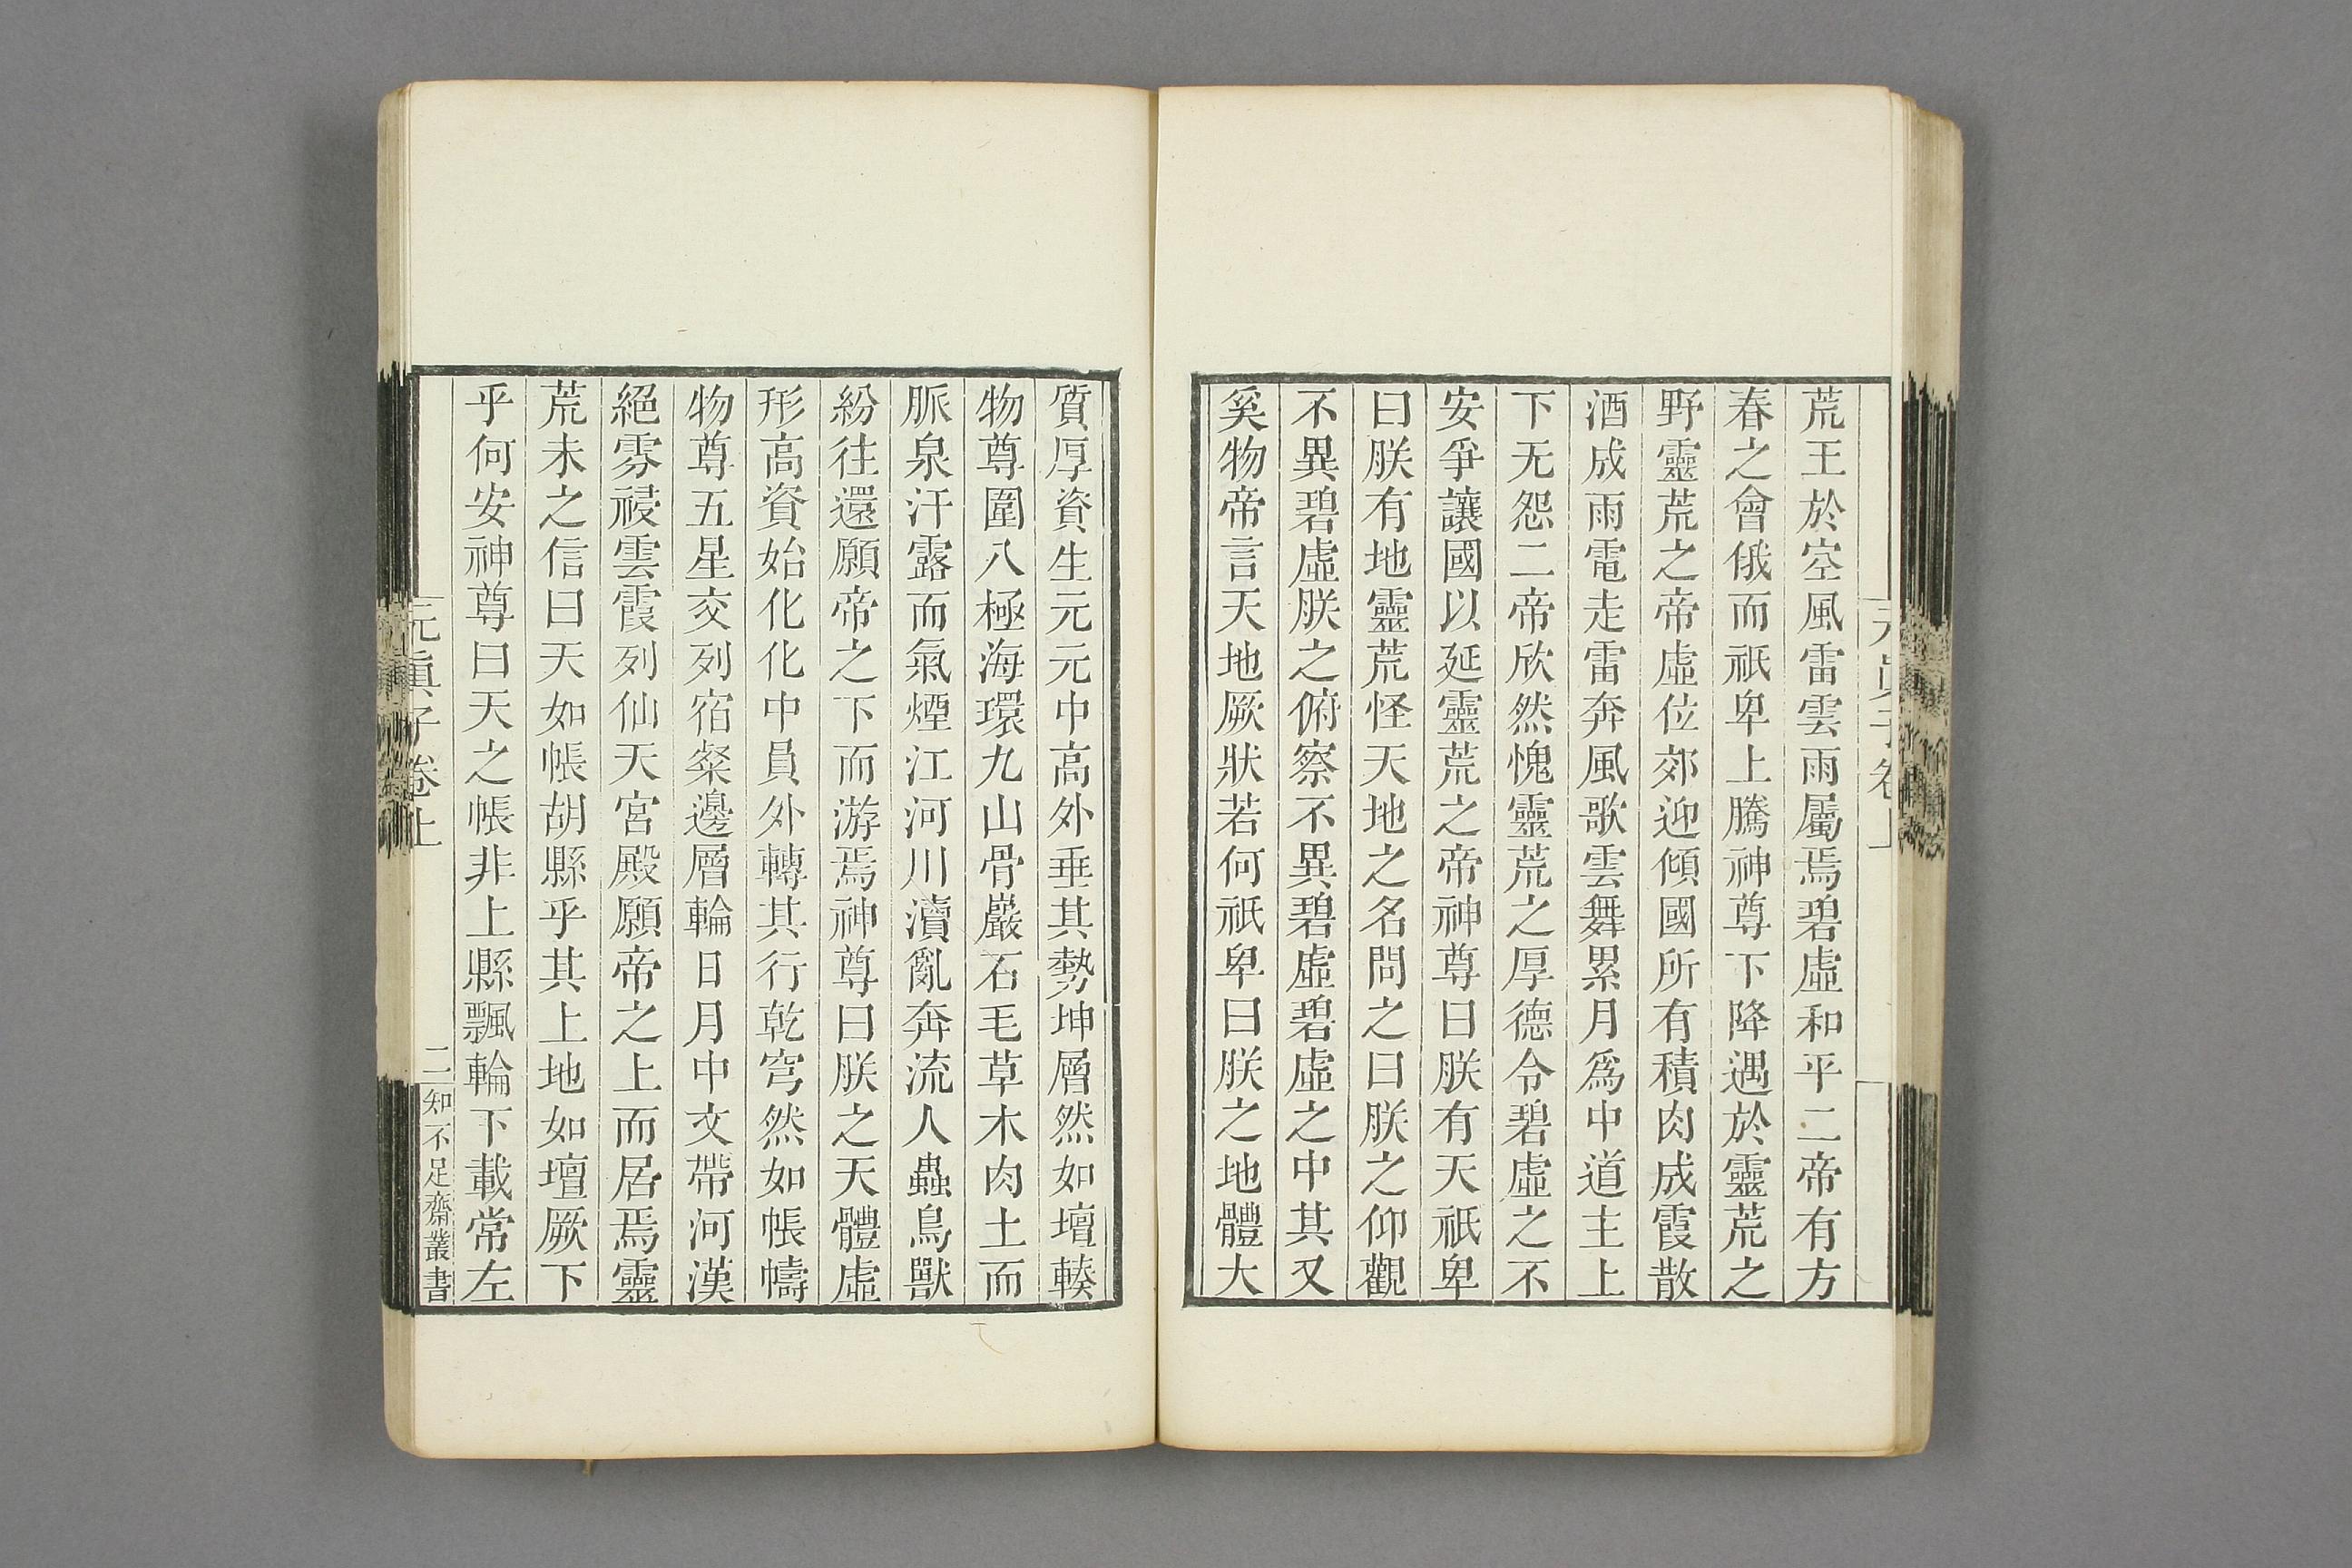 荒王於空風雷雲雨屬焉碧虛和平二帝有方
春之會俄而祇卑上騰神尊下降遇於靈荒之
野靈荒之帝虛位郊迎傾國所有積肉成霞散
酒成雨電走雷奔風歌雲舞累月爲中道主上
下无怨二帝欣然愧靈荒之厚德令碧虛之不
安爭讓國以延靈荒之帝神尊曰朕有天祇卑
曰朕有地靈荒怪天地之名問之曰朕之仰觀
不異碧虛朕之俯察不異碧虛碧虛之中其又
奚物帝言天地厥狀若何祇卑曰朕之地體大
質厚資生元元中高外垂其勢坤層然如壇輳
物尊圍八極海環九山骨巖石毛草木肉土而
脈泉汗露而氣煙江河川瀆亂奔流人蟲鳥獸
紛往還願帝之下而游焉神尊曰朕之天體虛
形高資始化化中員外轉其行乾穹然如帳幬
物尊五星交列宿粲邊層輪日月中文帶河漢
絕雰祲雲霞列仙天宮殿願帝之上而居焉靈
荒未之信曰天如帳胡縣乎其上地如壇厥下
乎何安神尊曰天之帳非上縣飄輪下載常左
元眞子卷上
二
知不足齋叢書